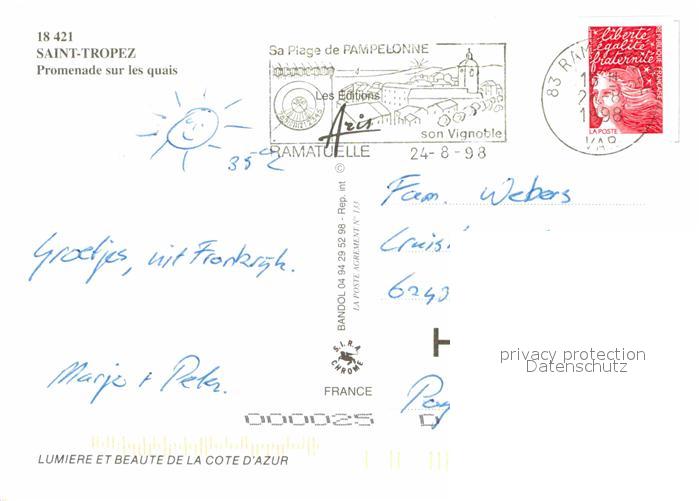 18 421
SAINT-TROPEZ
Promenade sur les quais
Sa Plage de PAMPELONNE
Les Editions
Aris
son Vignoble
RAMATUELLE 24-8-98
83 RAM
1998
VAR
liberté
égalité
fraternité
REPUBLIQUE FRANÇAISE
LA POSTE
35°C
Fam. Webers
Cruis
6243
Groetjes, uit Frankrijk.
Marjo + Peter.
BANDOL 04 94 29 52 98 - Rep. int ©
LA POSTE AGREMENT N° 133
S.I.R.A.
CHROME
FRANCE
Pay
000025 D
privacy protection
Datenschutz
LUMIERE ET BEAUTE DE LA COTE D'AZUR